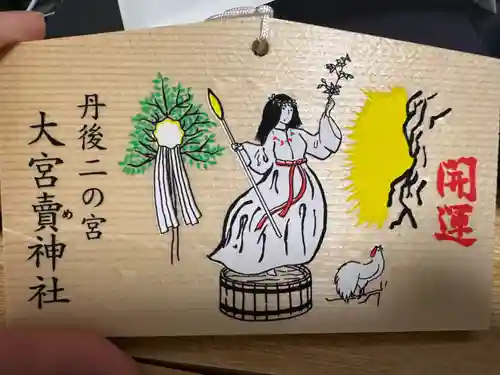 開運
丹後二の宮
大宮賣神社
め